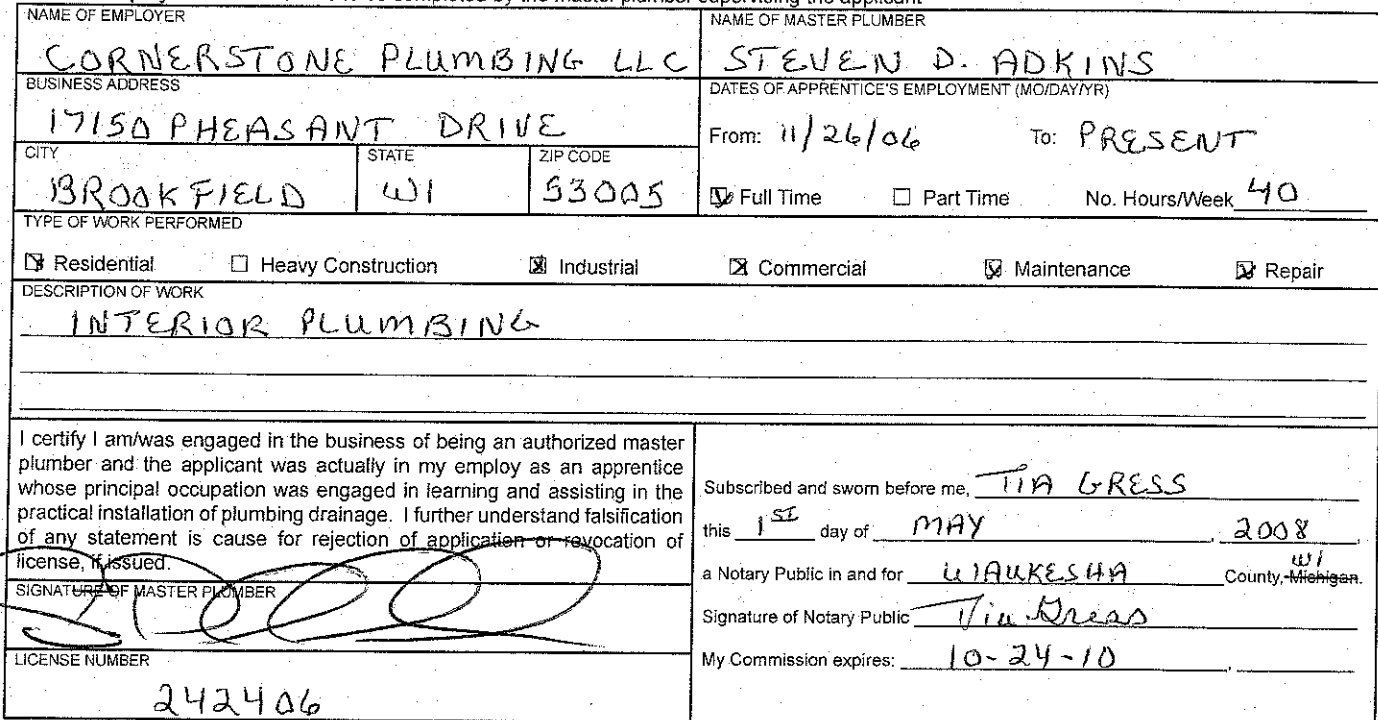 completed by the master plumber supervising the applicant
NAME OF EMPLOYER
CORNERSTONE PLUMBING LLC
NAME OF MASTER PLUMBER
STEVEN D. ADKINS
BUSINESS ADDRESS
17150 PHEASANT DRIVE
DATES OF APPRENTICE'S EMPLOYMENT (MO/DAY/YR)
From: 11/26/06 To: PRESENT
CITY STATE ZIP CODE
BROOKFIELD WI 53005
Full Time Part Time No. Hours/Week 40
TYPE OF WORK PERFORMED
Residential Heavy Construction Industrial Commercial Maintenance Repair
DESCRIPTION OF WORK
INTERIOR PLUMBING
I certify I am/was engaged in the business of being an authorized master
plumber and the applicant was actually in my employ as an apprentice
whose principal occupation was engaged in learning and assisting in the
practical installation of plumbing drainage. I further understand falsification
of any statement is cause for rejection of application or revocation of
license, if issued.
SIGNATURE OF MASTER PLUMBER
LICENSE NUMBER
242406
Subscribed and sworn before me, TIA GRESS
this 1ST day of MAY, 2008,
a Notary Public in and for WAUKESHA County, Michigan. WI
Signature of Notary Public Tia Gress
My Commission expires: 10-24-10,